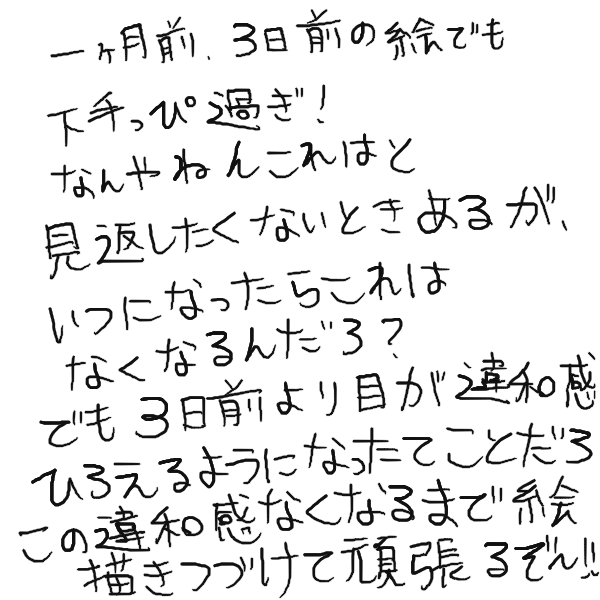 一ヶ月前、3日前の絵でも
下手っぴ過ぎ!
なんやねんこれはと
見返したくないときあるが、
いつになったらこれは
なくなるんだろ?
でも3日前より目が違和感
ひろえるようになったてことだろ
この違和感なくなるまで絵
描きつづけて頑張るぞん!!